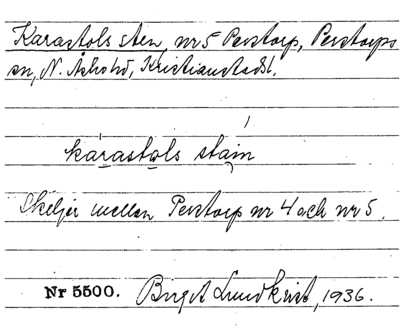 Karastols sten, nr 5 Perstorp, Perstorps
sn, N. Åsbo hd, Kristianstads l.
karastols stain
Skiljer mellan Perstorp nr 4 och nr 5.
Nr 5500. Birgit Lundkvist, 1936.